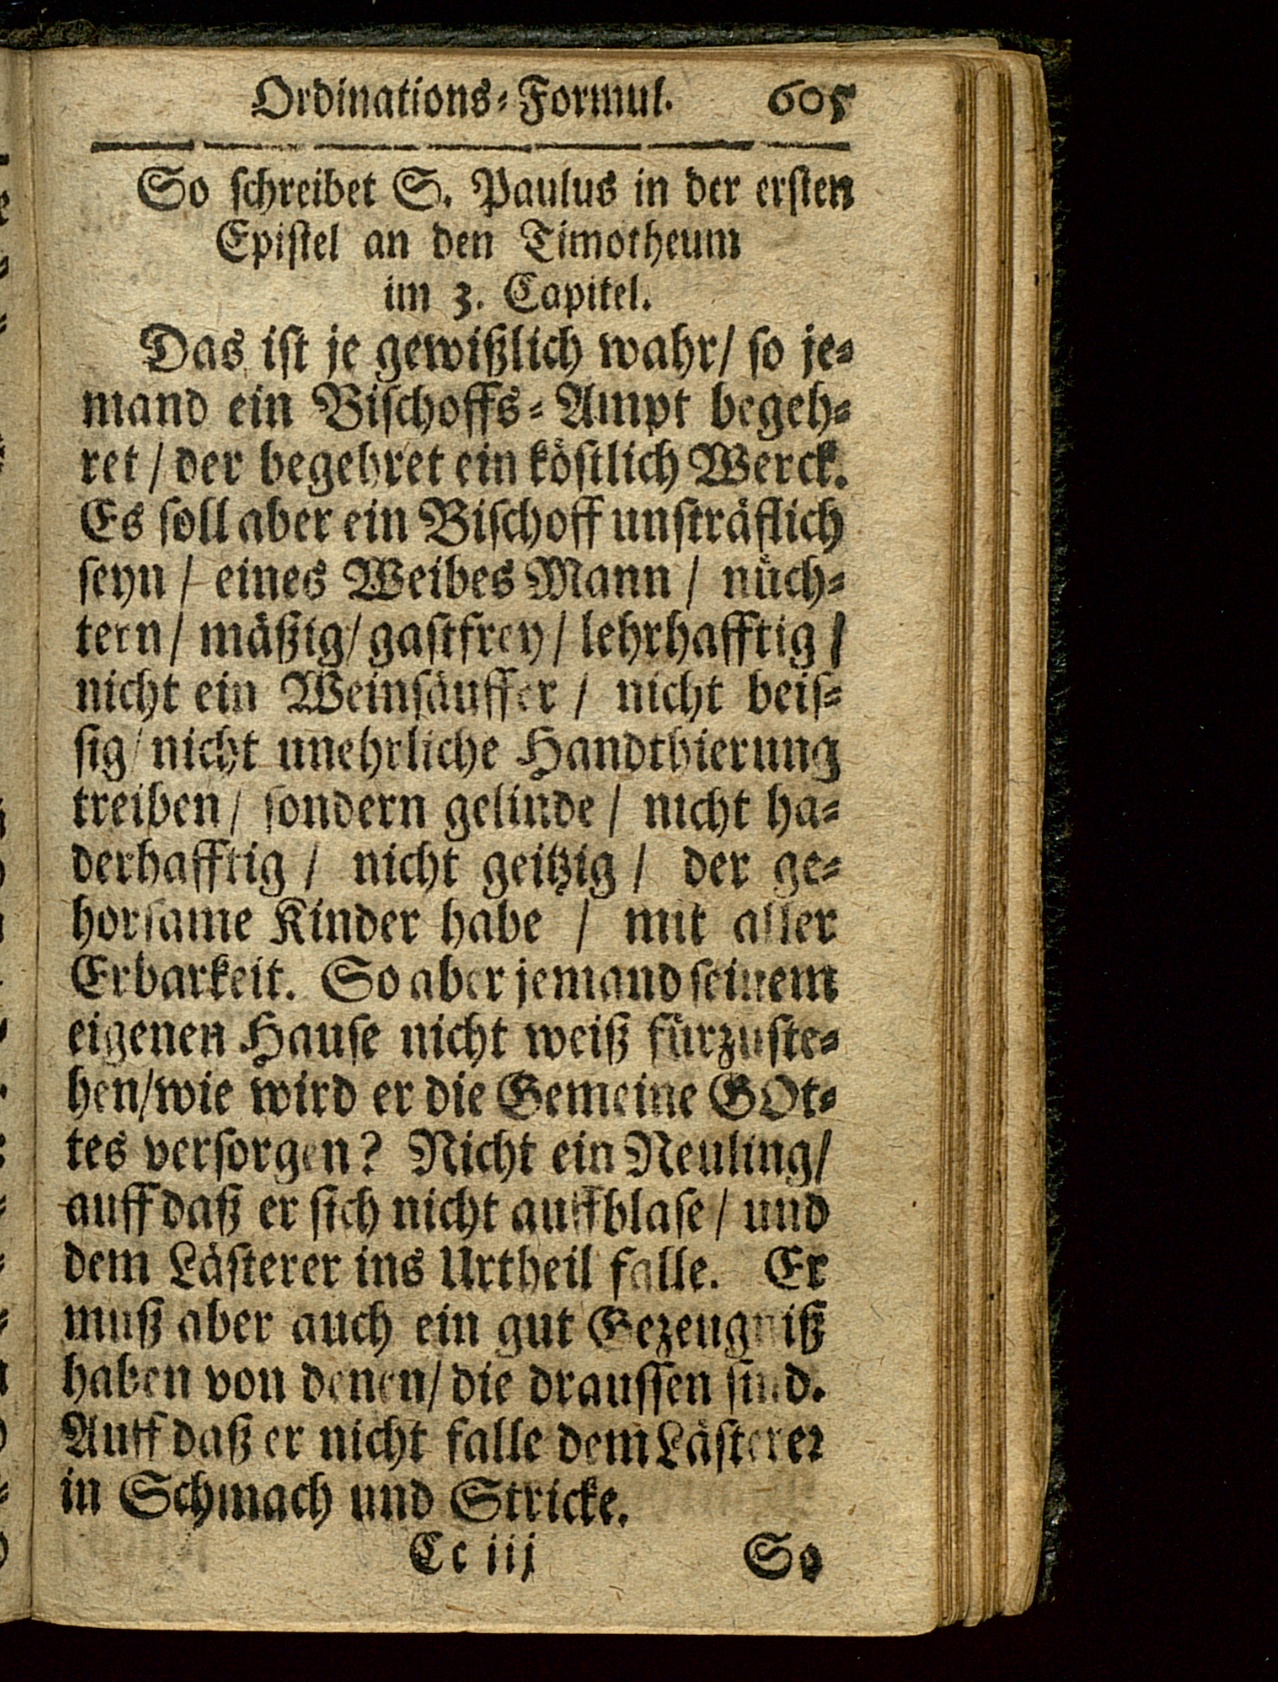 Ordinations-Formul. 605
So schreibet S. Paulus in der ersten
Epistel an den Timotheum
im 3. Capitel.
Das ist je gewißlich wahr/ so je-
mand ein Bischoffs-Ampt begeh-
ret / der begehret ein köstlich Werck.
Es soll aber ein Bischoff unsträflich
seyn / eines Weibes Mann / nüch-
tern/ mäßig/ gastfrey/ lehrhafftig /
nicht ein Weinsäuffer / nicht beis-
sig/ nicht unehrliche Handthierung
treiben/ sondern gelinde / nicht ha-
derhafftig / nicht geitzig / der ge-
horsame Kinder habe / mit aller
Erbarkeit. So aber jemand seinem
eigenen Hause nicht weiß fürzuste-
hen/wie wird er die Gemeine GOt-
tes versorgen? Nicht ein Neuling/
auff daß er sich nicht auffblase / und
dem Lästerer ins Urtheil falle. Er
muß aber auch ein gut Gezeugniß
haben von denen/ die draussen sind.
Auff daß er nicht falle dem Lästerer
in Schmach und Stricke.
Cc iij So